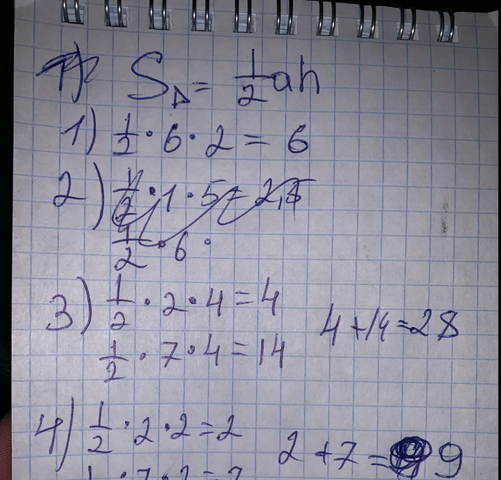 1) S△ = 1/2 ah
1) 1/2 · 6 · 2 = 6
2) 1/2 · 1 · 5 = 2,5
1/2 · 6 ·
3) 1/2 · 2 · 4 = 4
1/2 · 7 · 4 = 14
4 + 14 = 28
4) 1/2 · 2 · 2 = 2
2 + 7 = 9